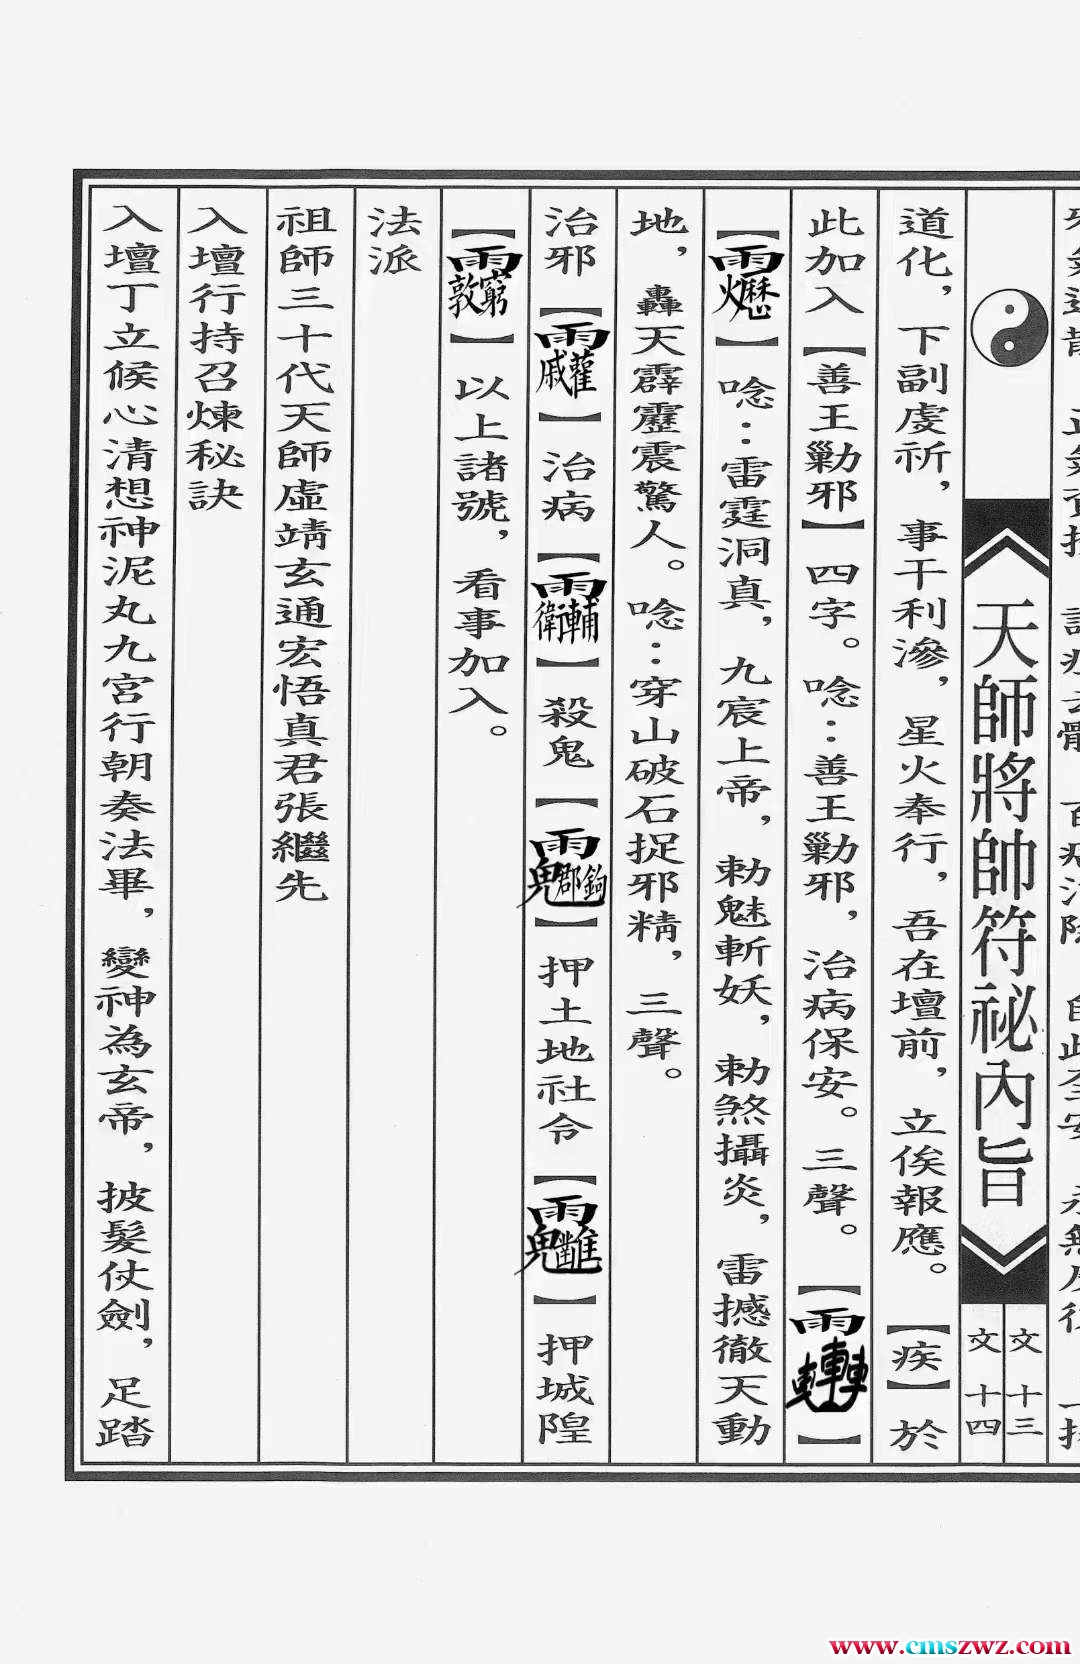 天師將帥符祕內旨
文十三
文十四
道化，下副虔祈，事干利滲，星火奉行，吾在壇前，立俟報應。【疾】於
此加入【善王勦邪】四字。唸：善王勦邪，治病保安。三聲。【】
【】唸：雷霆洞真，九宸上帝，勅魅斬妖，勅煞攝炎，雷撼徹天動
地，轟天霹靂震驚人。唸：穿山破石捉邪精，三聲。
治邪【】治病【】殺鬼【】押土地社令【】押城隍
【】以上諸號，看事加入。
法派
祖師三十代天師虛靖玄通宏悟真君張繼先
入壇行持召煉秘訣
入壇丁立候心清想神泥丸九宮行朝奏法畢，變神為玄帝，披髮仗劍，足踏
www.cmszwz.com